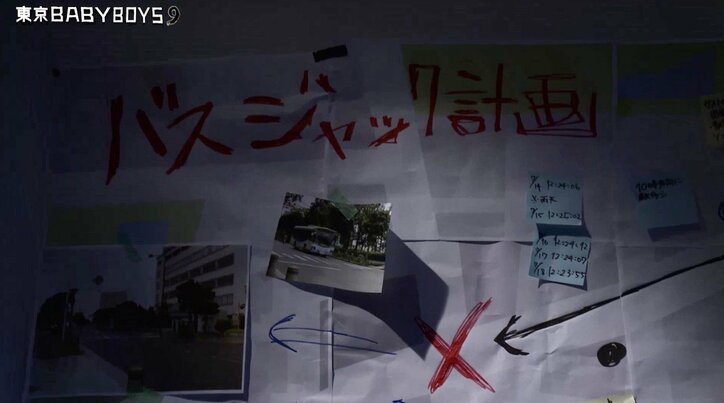 東京BABYBOYS9
バスジャック計画
7/14 12:24:06
X 雨天
7/15 12:25:02
7/16 12:24:12
7/17 12:24:07
7/18 12:23:55